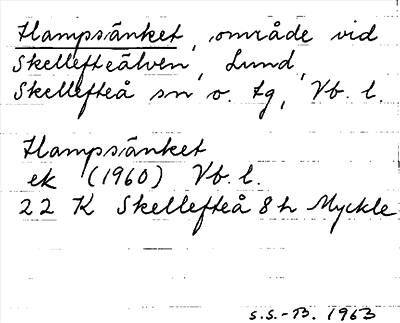 Hampsänket, område vid
Skellefteälven, Lund,
Skellefteå sn o. tg, Vb. l.
Hampsänket
ek (1960) Vb. l.
22 K Skellefteå 8 h Myckle
S.S.-B. 1963